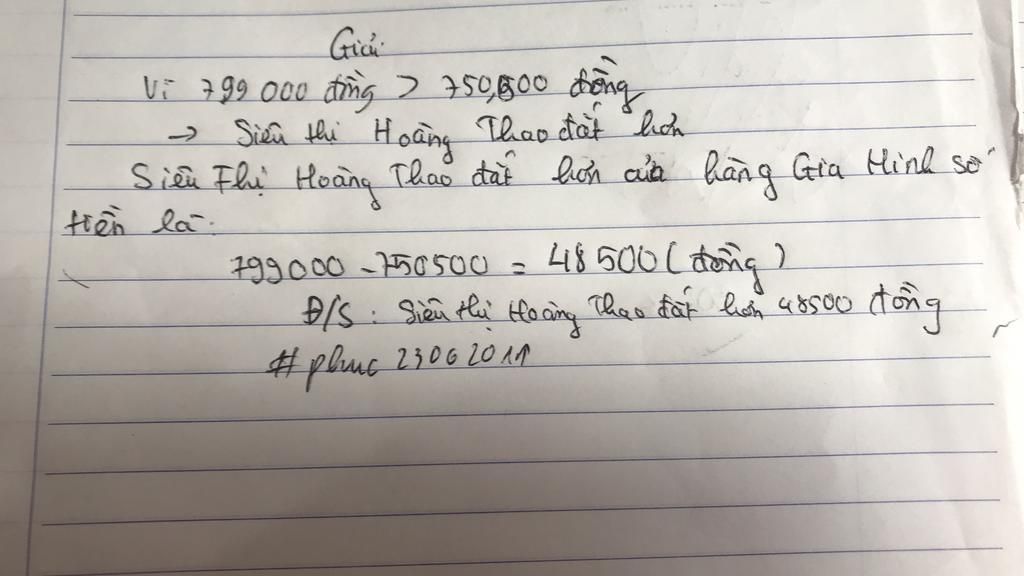 Giải:
Vì 799 000 đồng > 750,500 đồng
→ Siêu thị Hoàng Thao đắt hơn
Siêu Thị Hoàng Thao đắt hơn cửa hàng Gia Hinh số
tiền là:
799000 - 750500 = 48 500 ( đồng )
Đ/S : Siêu thị Hoàng Thao đắt hơn 48500 đồng
# phuc 23062011